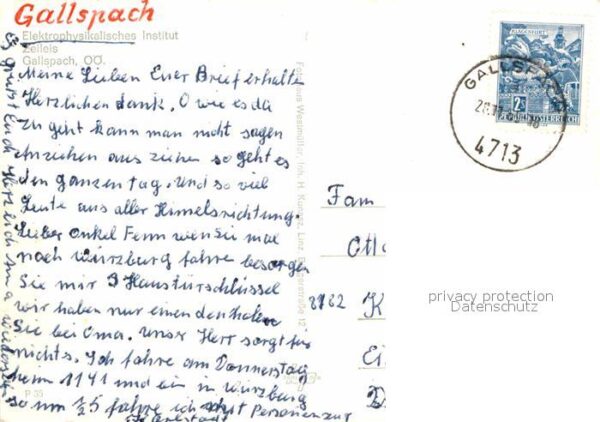 Gallspach
Elektrophysikalisches Institut
Zeileis
Gallspach, OÖ.
Meine Lieben Euer Brief erhalten
Herzlichen dank. O wie es da
zu geht kann man nicht sagen
anziehen aus ziehen so geht es
den ganzen tag. Und so viel
Leute aus aller Himelsrichtung.
Lieber onkel wen Sie mal
nach würzburg fahre besorgen
Sie mir 3 Haustürschlüssel
wir haben nur einen den holen
Sie bei Oma. Unser Herr sorgt für
nichts. Ich fahre am Donnerstag
heim 1141 und bin in würzburg
so um 1/25 fahre ich mit Personenzug
Es grüßt Euch Herzlich
P 35
Fotohaus Westmüller, Inh. H. Linz,
KLAGENFURT
REPUBLIK ÖSTERREICH
GALLSPACH
4713
Fam
8782 K
privacy protection
Datenschutz